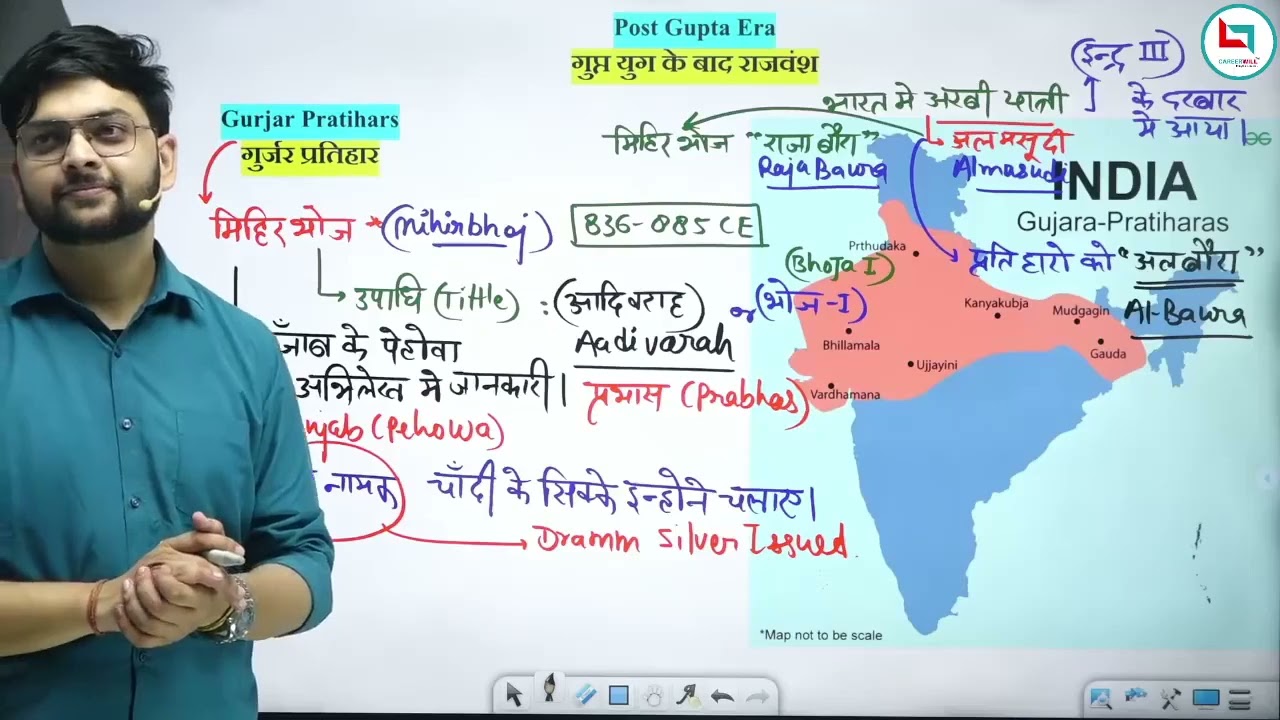 Post Gupta Era
गुप्त युग के बाद राजवंश
(इन्द्र III)
CAREERWILL
Gurjar Pratihars
गुर्जर प्रतिहार
भारत मे अरबी यात्री
के दरबार
मे आया।
मिहिर भोज "राजा बौरा"
अलमसूदी
Raja Bawra
Almasudi
INDIA
Gujara-Pratiharas
मिहिर भोज *(Mihirbhoj)
836-885 CE
Prthudaka
प्रतिहारो को "अलबौरा"
(Bhoja I)
Al-Bawra
उपाधि (Tittle) : (आदिवराह) or (भोज-I)
Aadivarah
Kanyakubja
Mudgagin
Bhillamala
Gauda
Ujjayini
Vardhamana
के पेहोवा
अभिलेख मे जानकारी।
प्रभास (Prabhas)
(Pehowa)
नामक चाँदी के सिक्के इन्होने चलाए।
Dramm Silver Issued
*Map not to be scale